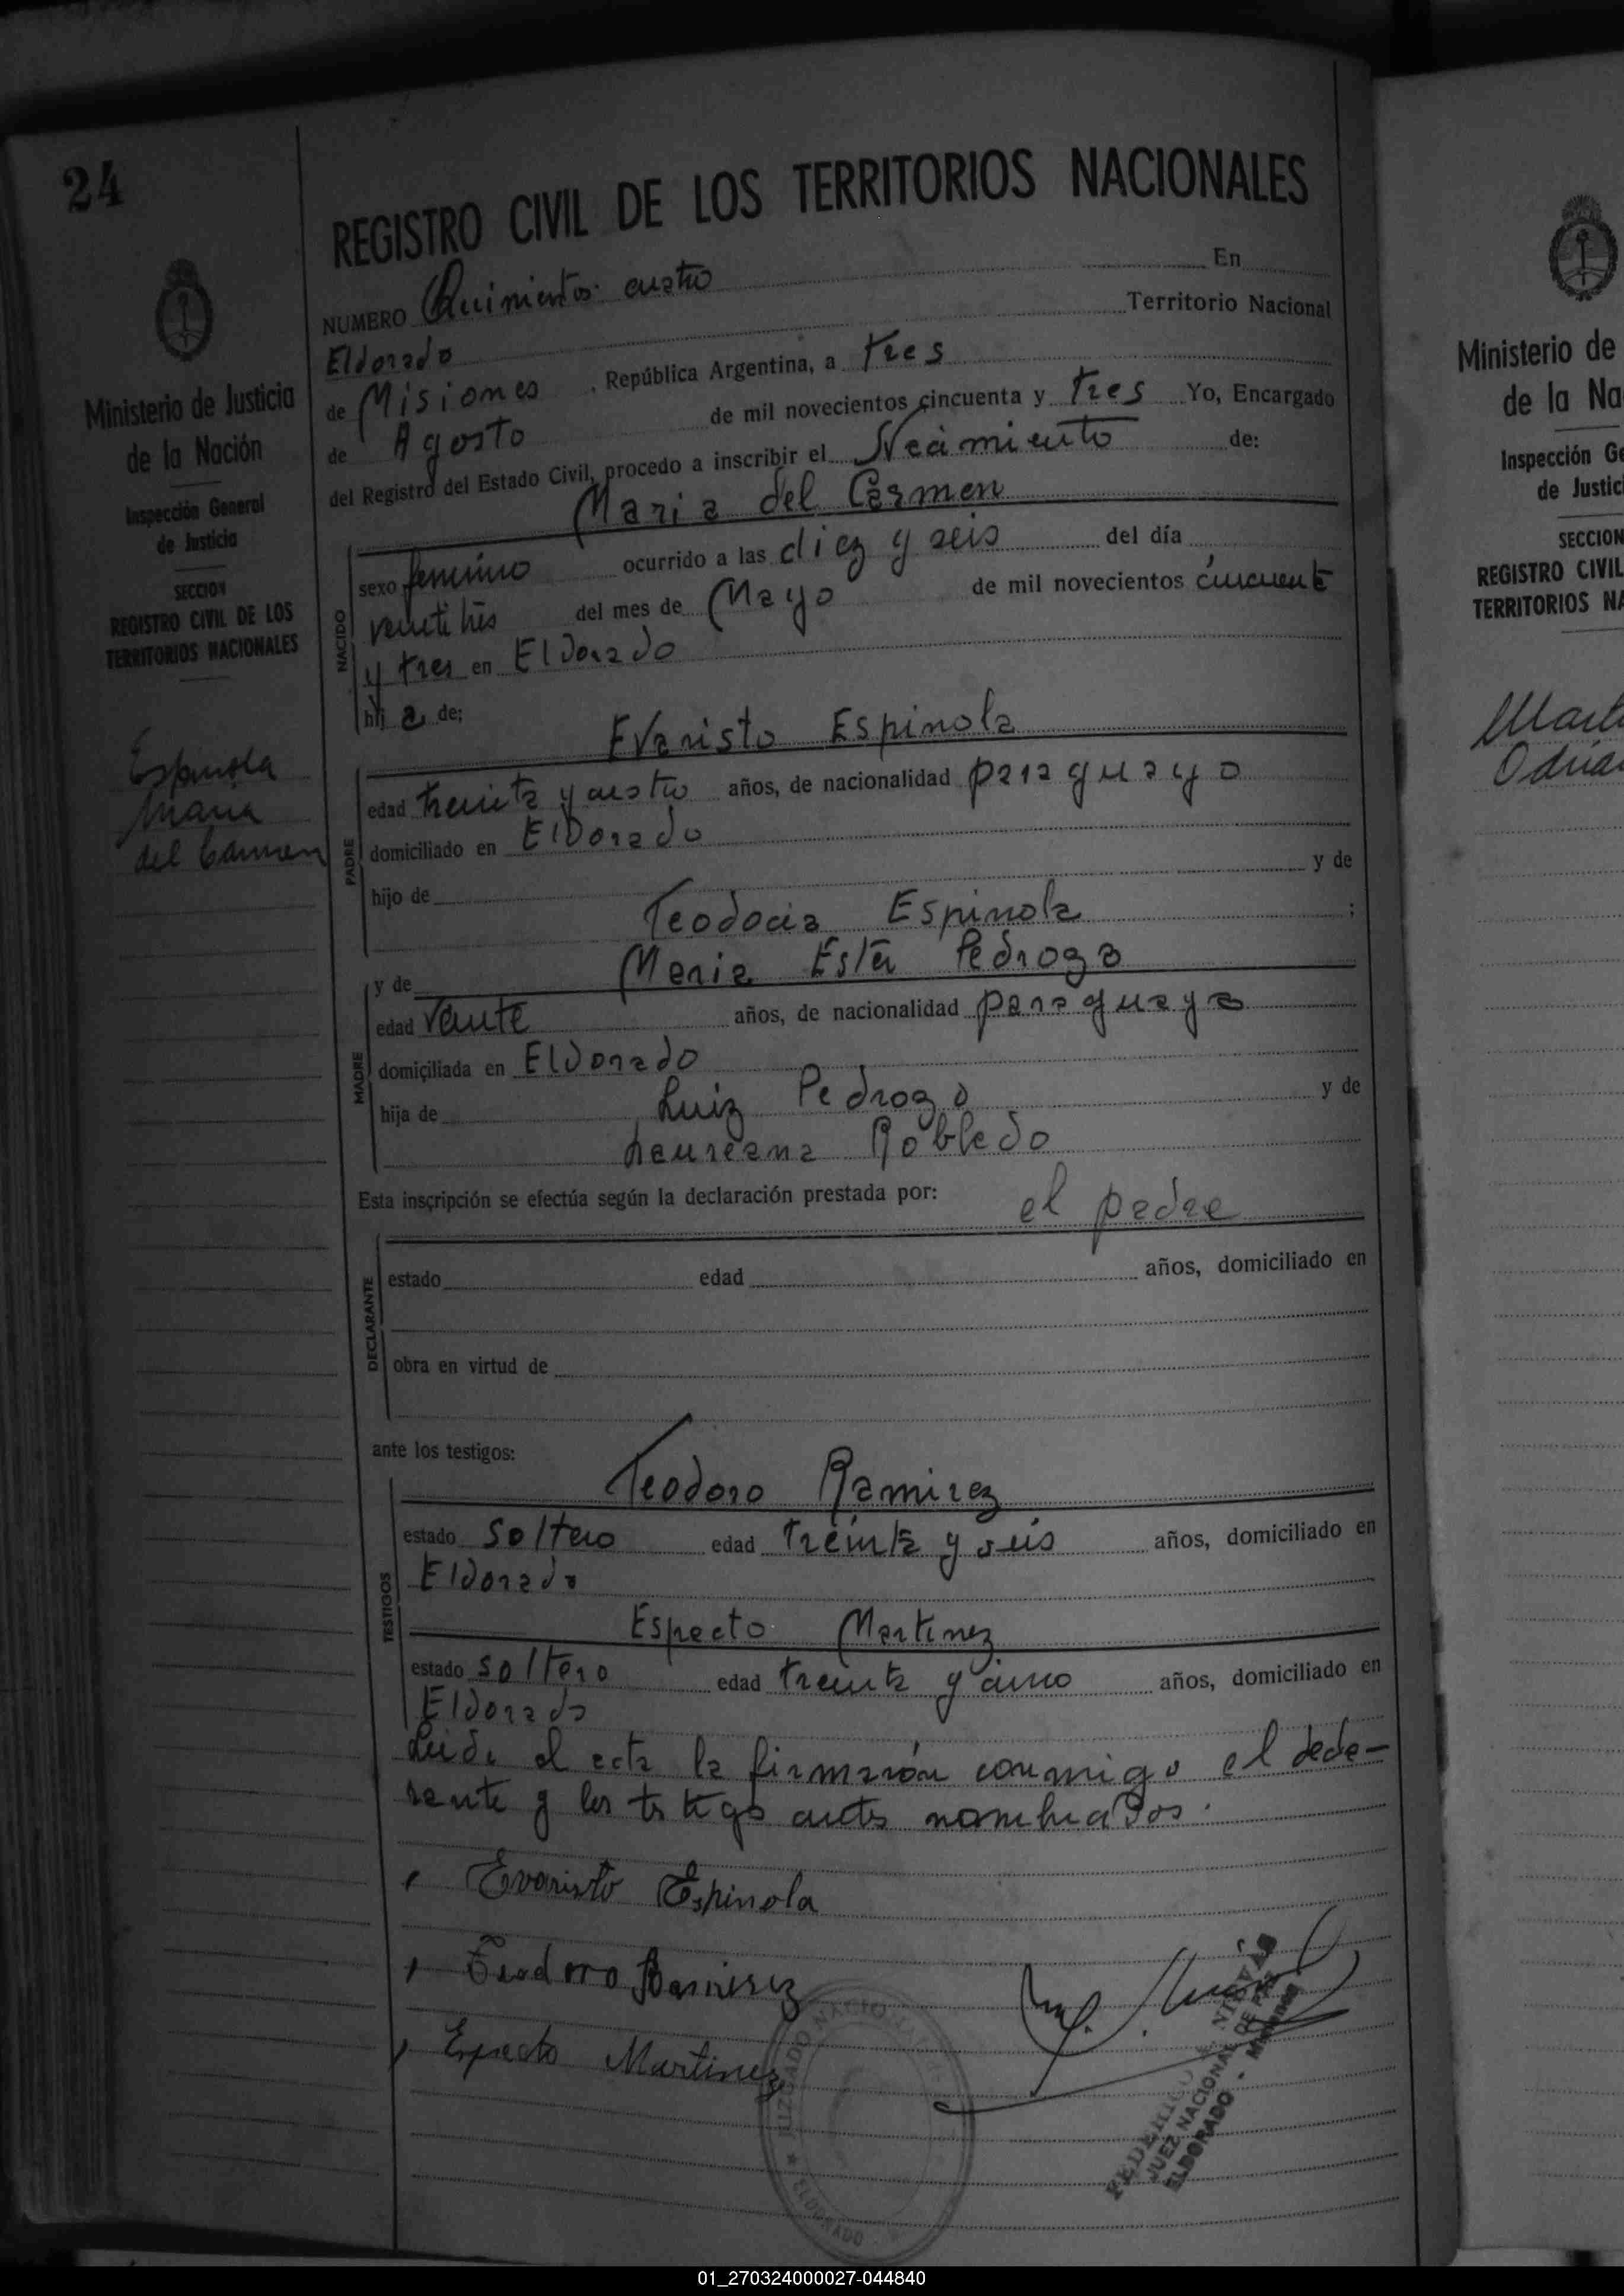 24
REGISTRO CIVIL DE LOS TERRITORIOS NACIONALES
Ministerio de Justicia
de la Nación
Inspección General
de Justicia
SECCION
REGISTRO CIVIL DE LOS
TERRITORIOS NACIONALES
Espinola
Maria
del Carmen
NUMERO Quinientos cuatro En
Eldorado Territorio Nacional
de Misiones, República Argentina, a tres
de Agosto de mil novecientos cincuenta y tres Yo, Encargado
del Registro del Estado Civil, procedo a inscribir el Nacimiento de:
Maria del Carmen
NACIDO
sexo femenino ocurrido a las diez y seis del día
veinti trés del mes de Mayo de mil novecientos cincuenta
y tres en Eldorado
hij a de:
Evaristo Espinola
PADRE
edad treinta y cuatro años, de nacionalidad paraguayo
domiciliado en Eldorado
hijo de y de
Teodocia Espinola ;
y de Maria Ester Pedrozo
MADRE
edad veinte años, de nacionalidad paraguaya
domiciliada en Eldorado
hija de Luiz Pedrozo y de
Laureana Robledo
Esta inscripción se efectúa según la declaración prestada por: el padre
DECLARANTE
estado edad años, domiciliado en
obra en virtud de
ante los testigos:
Teodoro Ramirez
TESTIGOS
estado soltero edad treinta y seis años, domiciliado en
Eldorado
Especto Martinez
estado soltero edad treinta y cinco años, domiciliado en
Eldorado
Leida el acta la firmarón conmigo el decla-
rante y los testigos antes nombrados.
Evaristo Espinola
Teodoro Ramirez
Especto Martinez
JUZGADO NACIONAL DE
ELDORADO
FEDERICO
JUEZ NACIONAL DE PAZ
ELDORADO - Misiones
Ministerio de
de la Na
Inspección Ge
de Justici
SECCION
REGISTRO CIVIL
TERRITORIOS NA
01_270324000027-044840